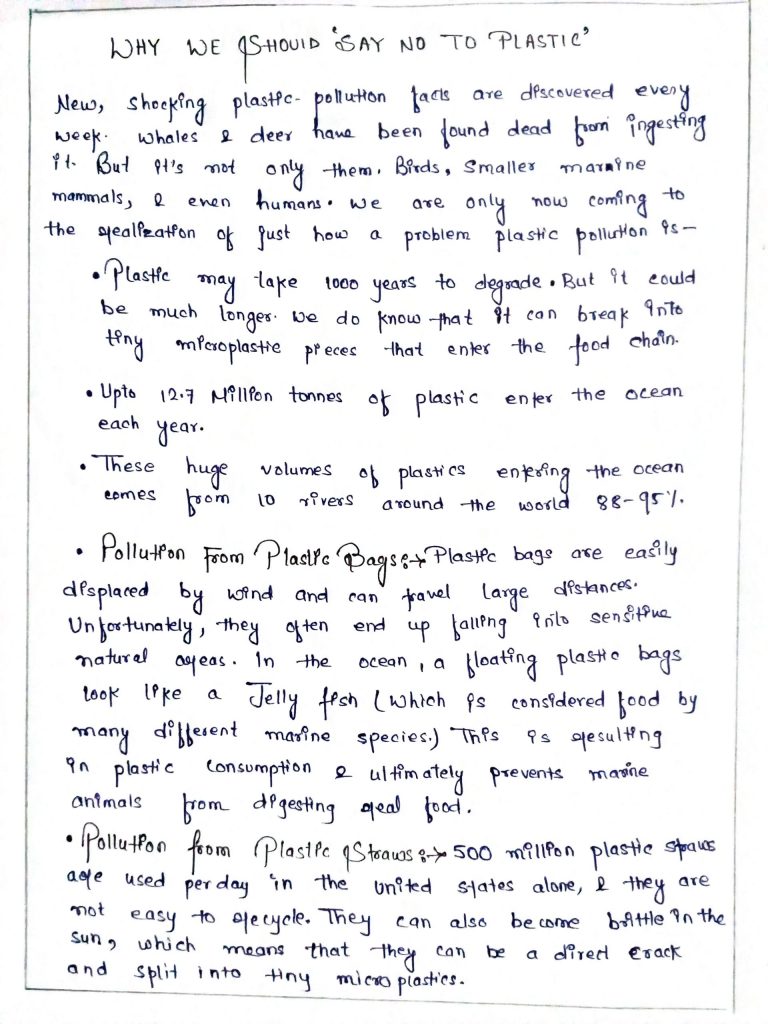 WHY WE SHOULD 'SAY NO TO PLASTIC'
New, shocking plastic-pollution facts are discovered every
week. Whales & deer have been found dead from ingesting
it. But it's not only them. Birds, smaller marnine
mammals, & even humans. We are only now coming to
the realization of just how a problem plastic pollution is-
• Plastic may take 1000 years to degrade. But it could
be much longer. We do know that it can break into
tiny microplastic pieces that enter the food chain.
• Upto 12.7 Million tonnes of plastic enter the ocean
each year.
• These huge volumes of plastics entering the ocean
comes from 10 rivers around the world 88-95%.
• Pollution From Plastic Bags:→ Plastic bags are easily
displaced by wind and can travel large distances.
Unfortunately, they often end up falling into sensitive
natural areas. In the ocean, a floating plastic bags
look like a Jelly fish (Which is considered food by
many different marine species.) This is resulting
in plastic consumption & ultimately prevents marine
animals from digesting real food.
• Pollution from Plastic Straws:→ 500 million plastic straws
are used per day in the united states alone, & they are
not easy to recycle. They can also become brittle in the
sun, which means that they can be a direct crack
and split into tiny microplastics.